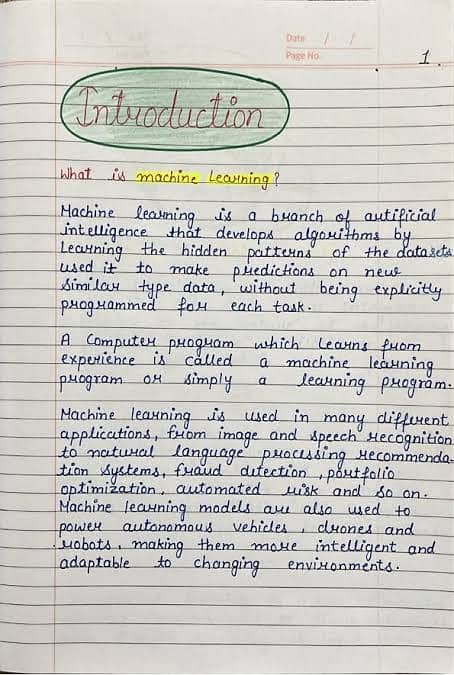 Date / /
Page No.
1.
Introduction
What is machine Learning?
Machine learning is a branch of autificial
intelligence that develops algorithms by
Learning the hidden patterns of the datasets
used it to make predictions on new
similar type data, without being explicitly
programmed for each task.
A Computer program which Learns from
experience is called a machine learning
program or simply a learning program.
Machine learning is used in many different
applications, from image and speech recognition
to natural language processing, recommenda-
tion systems, fraud detection, portfolio
optimization, automated risk and so on.
Machine learning models are also used to
power autonomous vehicles, drones and
robots, making them more intelligent and
adaptable to changing environments.